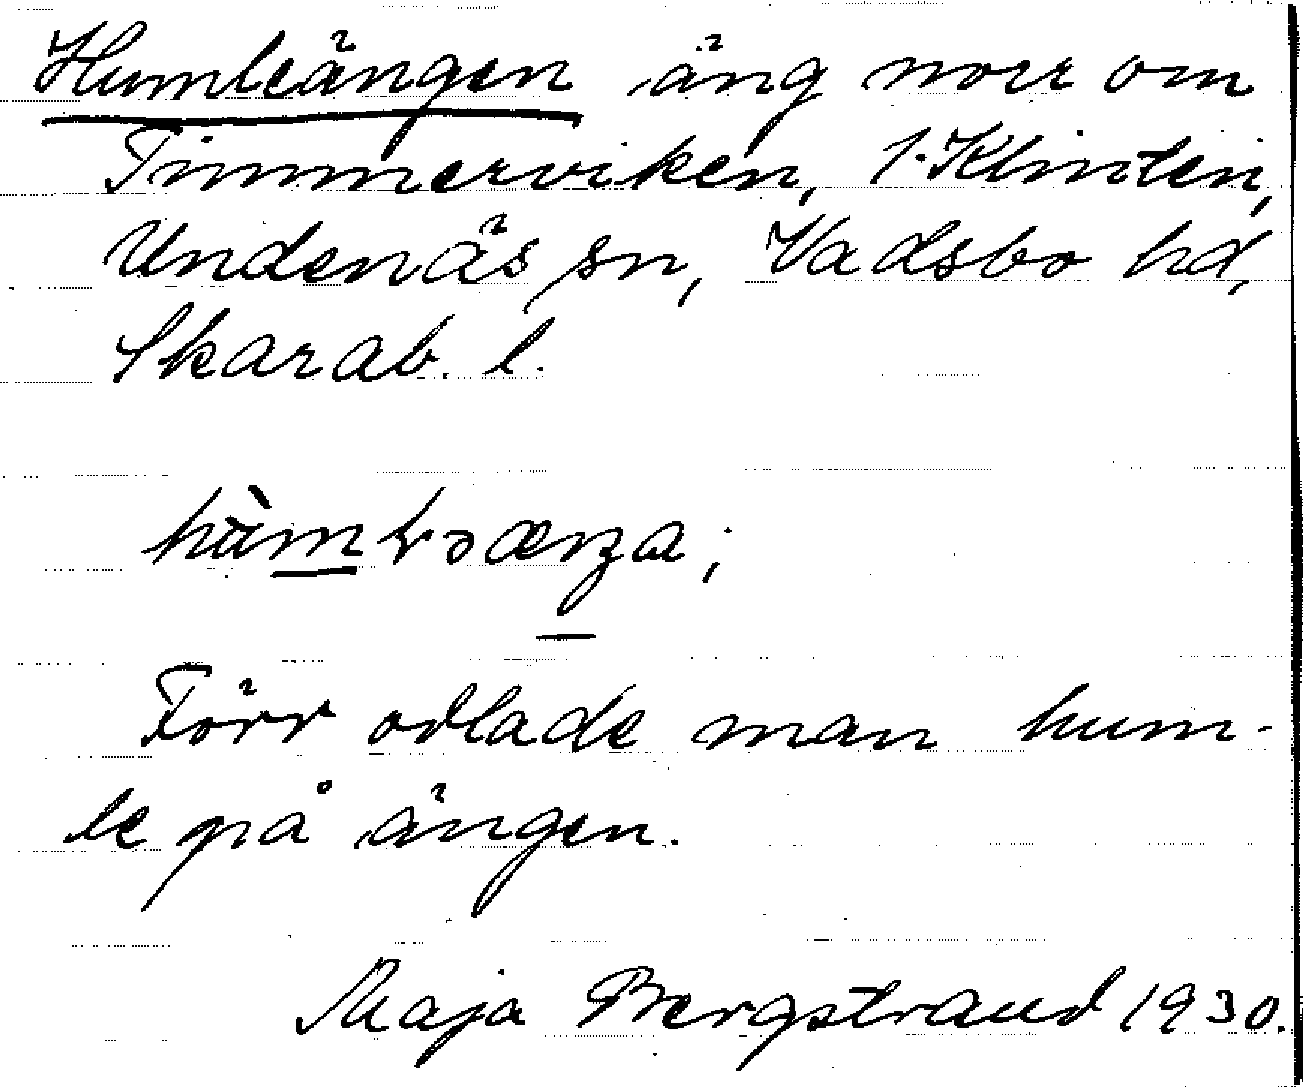 Humleängen äng norr om
Timmerviken, 1. Klinten,
Undenäs sn, Vadsbo hd,
Skarab. l.
Förr odlade man hum-
le på ängen.
Maja Bergstrand 1930.